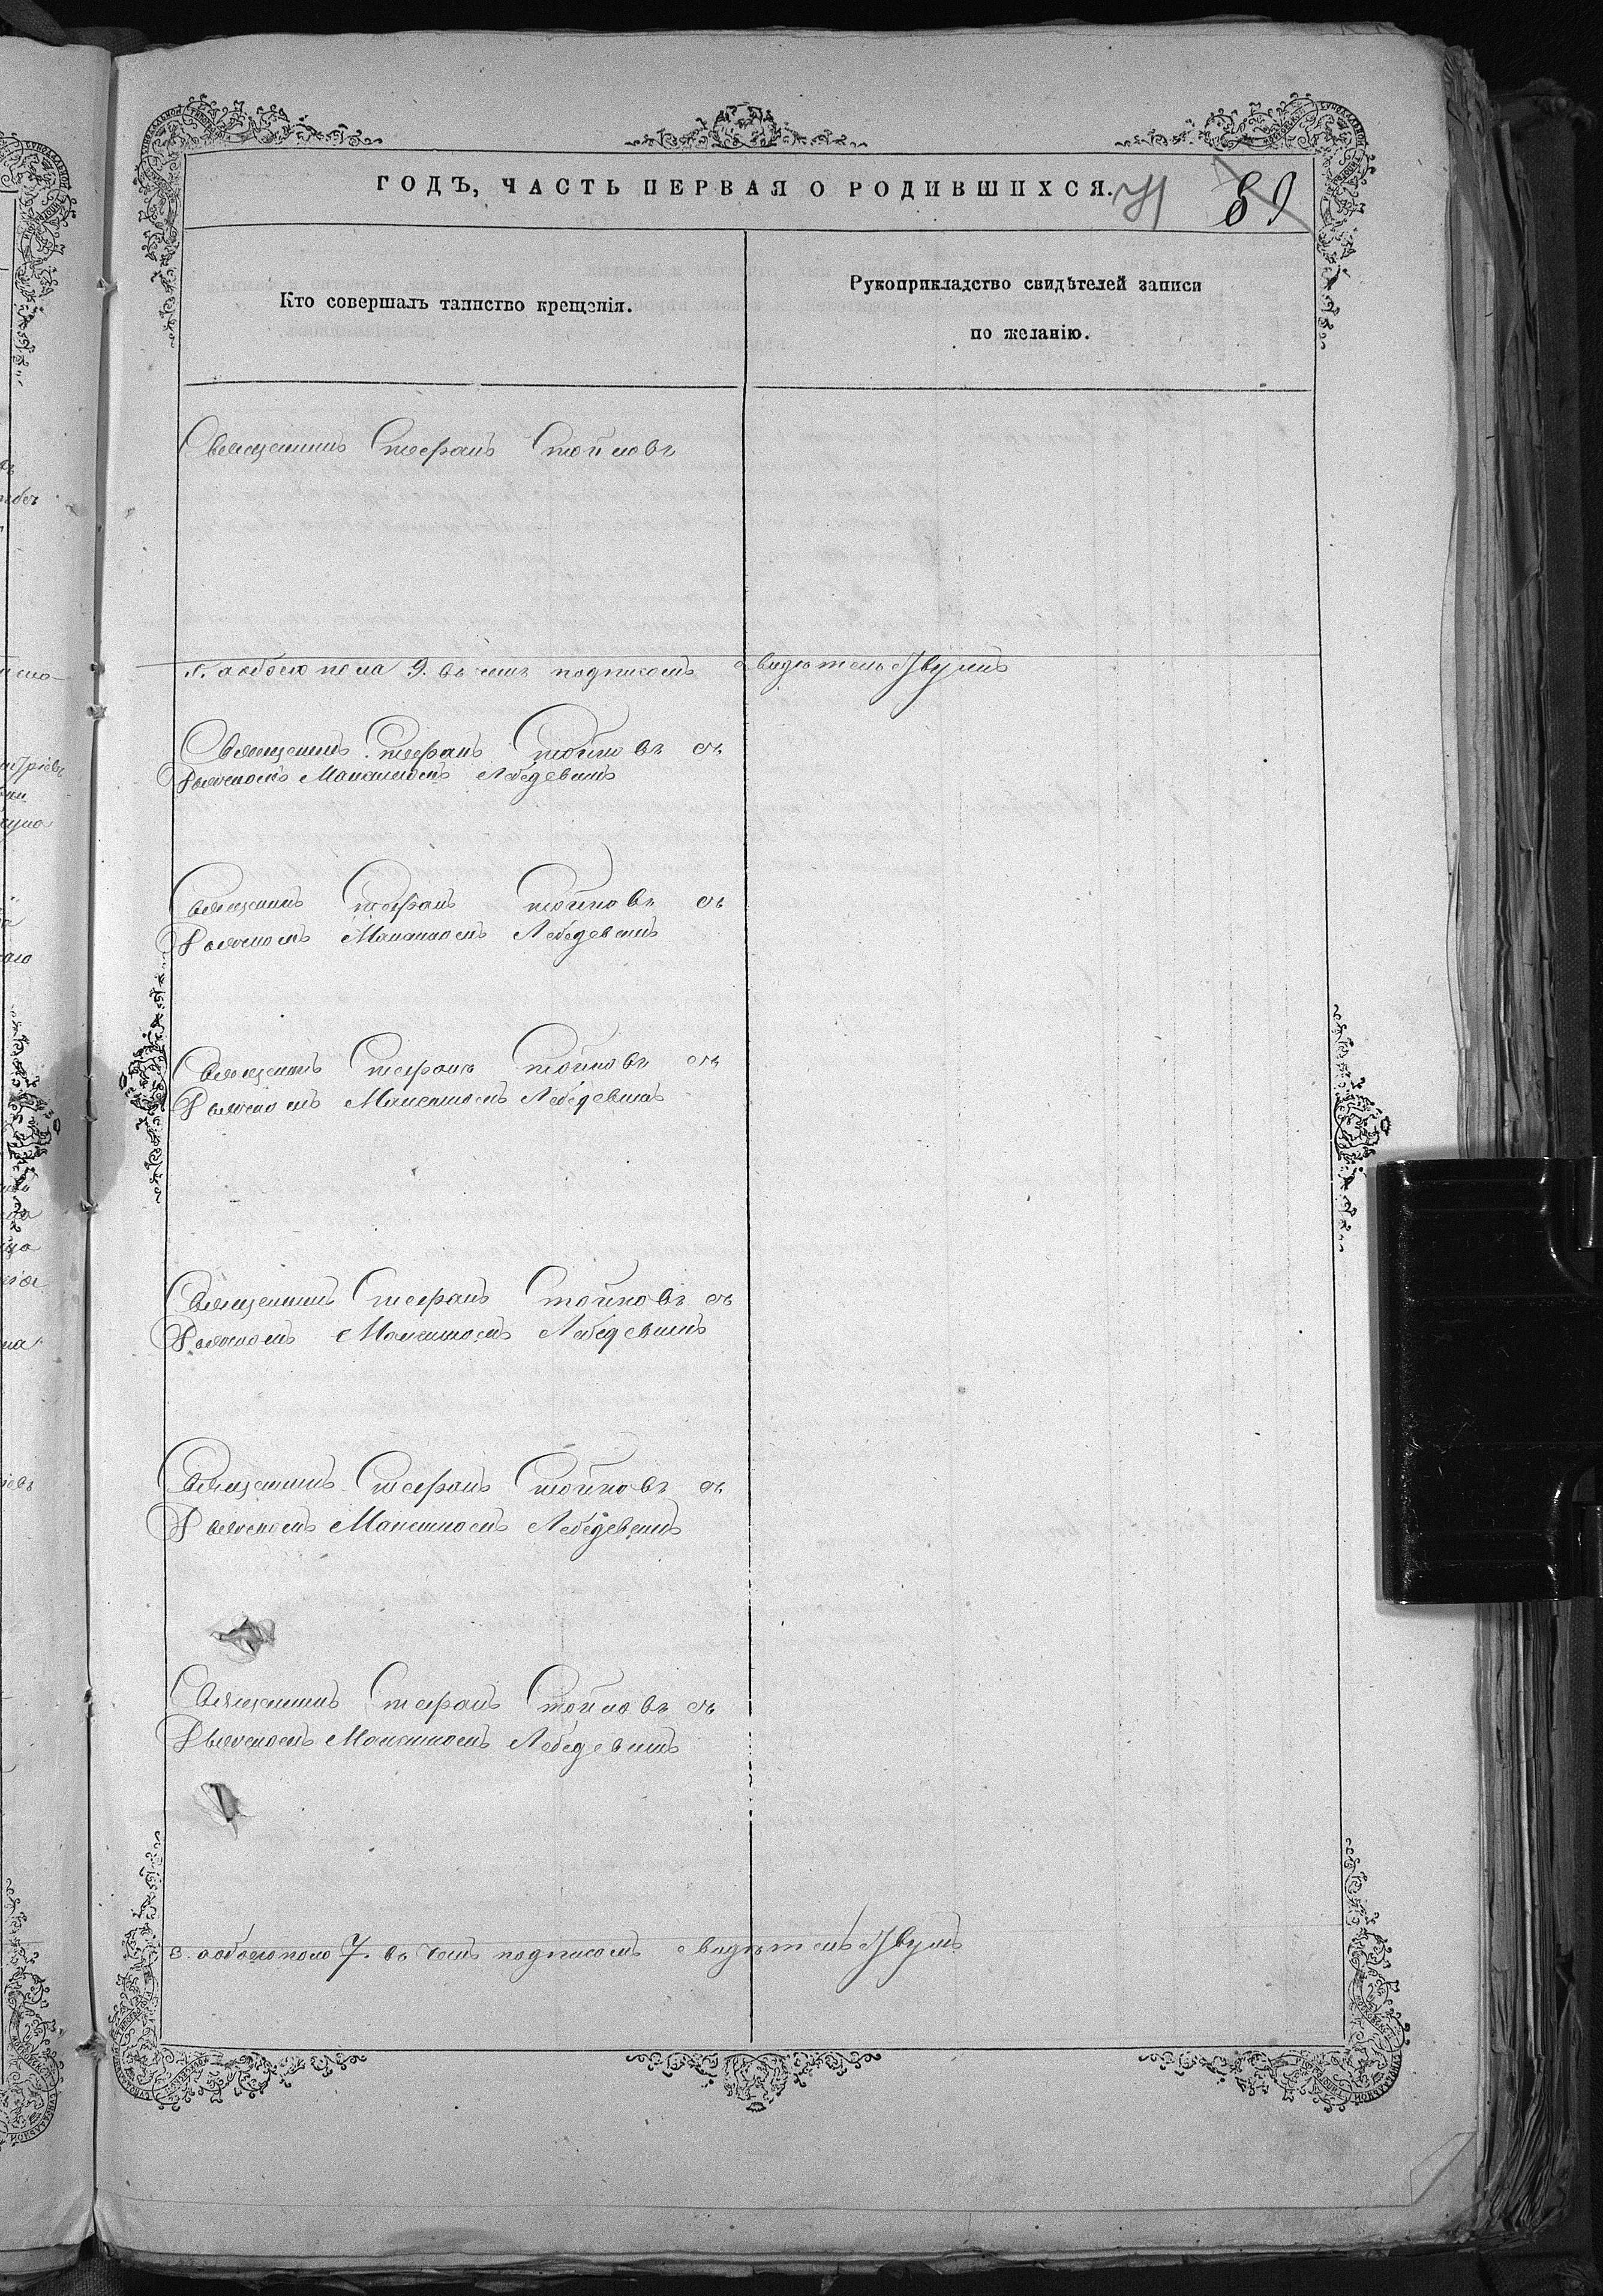 ГОДЪ, ЧАСТЬ ПЕРВАЯ О РОДИВШИХСЯ.
89
Кто совершалъ таинство крещенія.
Рукоприкладство свидѣтелей записи
по желанію.
Священникъ Стефанъ Стойковъ
5. а обоего пола 9. въ чемъ подписомъ свидѣтельствуемъ
Священникъ Стефанъ Стойковъ съ
Дьячкомъ Максимомъ Лебедевымъ
Священникъ Стефанъ Стойковъ съ
Дьячкомъ Максимомъ Лебедевымъ
Священникъ Стефанъ Стойковъ съ
Дьячкомъ Максимомъ Лебедевымъ
Священникъ Стефанъ Стойковъ съ
Дьячкомъ Максимомъ Лебедевымъ
Священникъ Стефанъ Стойковъ съ
Дьячкомъ Максимомъ Лебедевымъ
Священникъ Стефанъ Стойковъ съ
Дьячкомъ Максимомъ Лебедевымъ
3. а обоего пола 7. въ чемъ подписомъ свидѣтельствуемъ